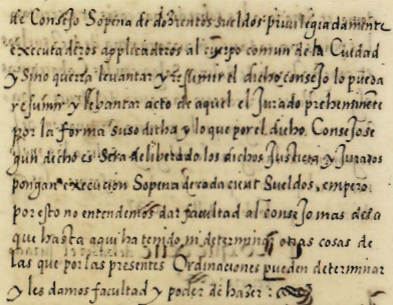 de Consejo Sopena de dozientos sueldos priuilegiadamente
executaderos applicaderos al cuerpo comun de la Ciudad
y Sino querra leuantar y ressumir el dicho consejo lo pueda
resumir y lebantar acto de aquel el Jurado preheminẽte
por la forma suso ditha y lo que por el dicho Consejo se
gun dicho es Sera deliberado los dichos Justicia y Jurados
pongan execucion Sopena de cada cient Sueldos, empero
por esto no entendemos dar facultad al consejo mas dela
que hasta aqui ha tenido ni determinar otras cosas de
las que por las presentes Ordinaciones pueden determinar
y les damos facultad y poder de hazer